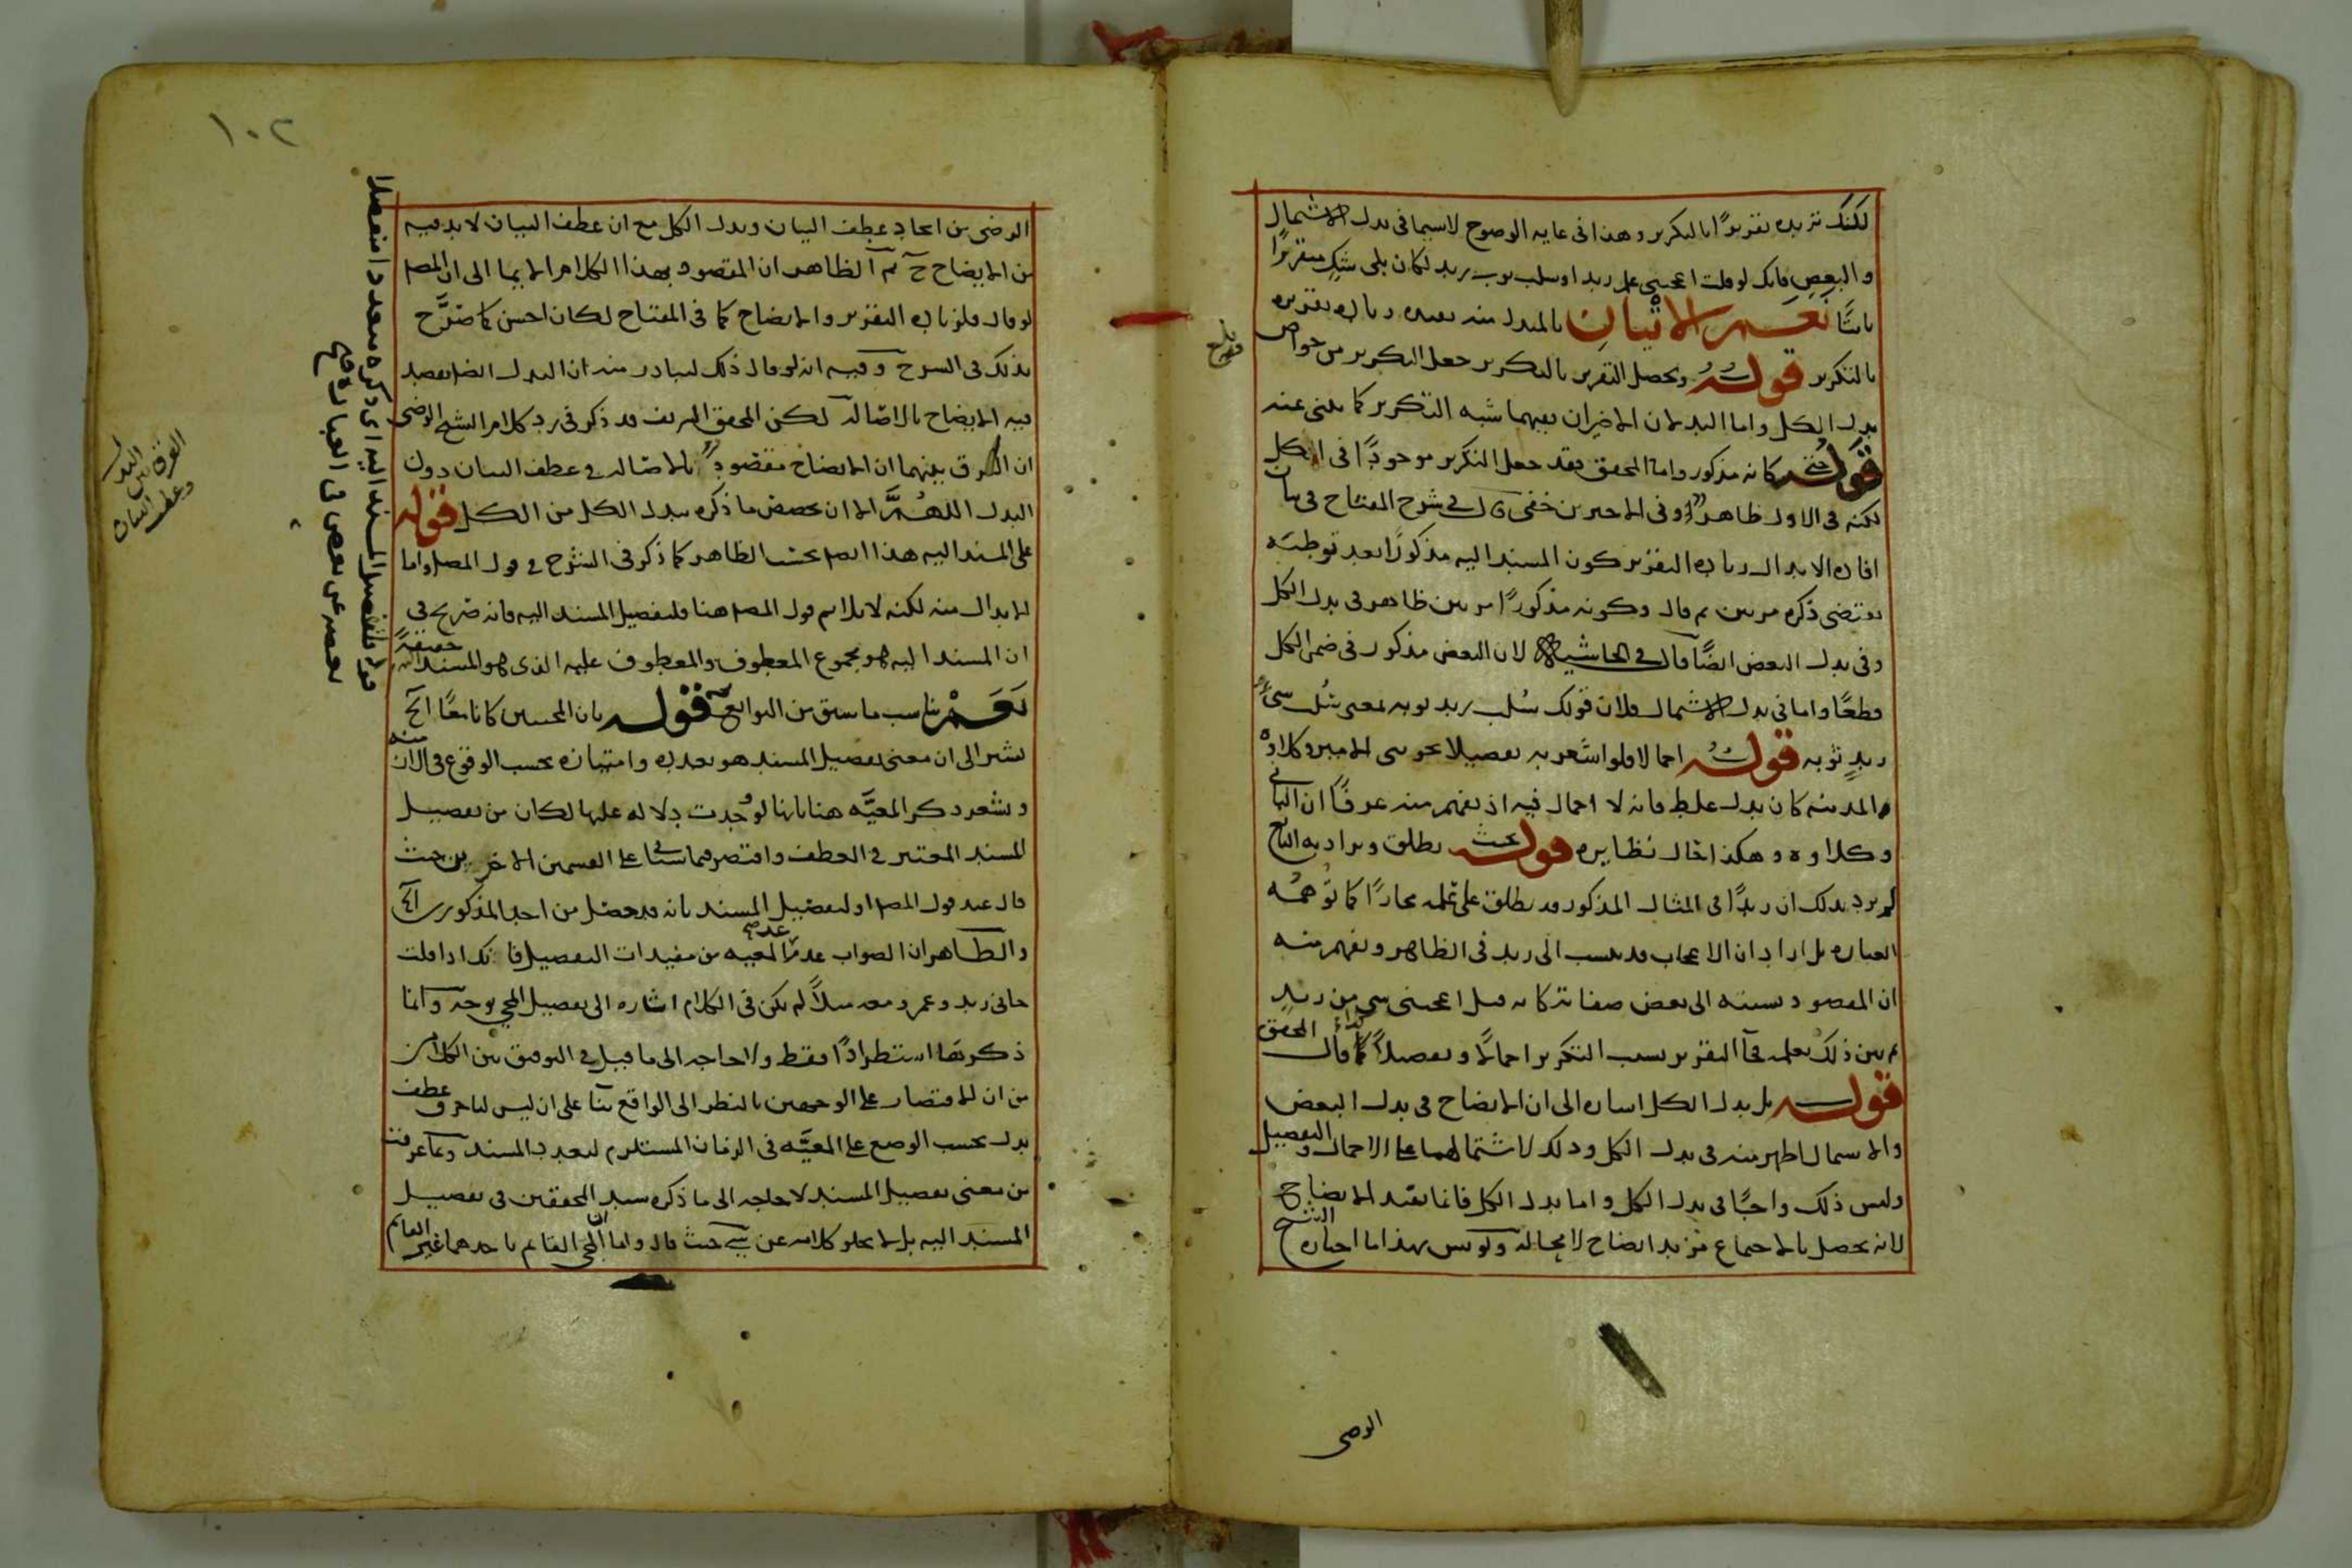 لكنك تريد تقريرًا بالتكرير وهذا فى غاية الوضوح لاسيما فى بدل الاشتمال
والبعض فانك لو قلت اعجبنى علم زيد او سلب ثوب زيد لكان
نعم الاتيان بالمبدل منه بعيده زيادة تقريره
بالتكرير قوله ويحصل التقرير بالتكرير جعل التكرير من خواص
بدل الكل واما البدلان الاخيران ففيهما شبه التكرير كما ينبى عنه
قوله كانه مذكور واما المحقق فقد جعل التكرير موجودًا فى الكل
لكنه فى الاول ظاهر وفى الاخيرين خفى قال فى شرح المفتاح فى بيان
افادة الابدال زيادة التقرير كون المسند اليه مذكورًا بعد توطية
يقتضى ذكره مرتين ثم قال وكونه مذكورًا مرتين ظاهر فى بدل الكل
وفى بدل البعض ايضًا قال فى الحاشية لان البعض مذكور فى ضمن الكل
قطعًا واما فى بدل الاشتمال فلان قولك سُلب زيد ثوبه بمعنى سُلب شىء
زيدٍ ثوبه قوله اجمالا فلو اشعر به تفصيلا نحو بنى الامير وكلاؤه
المدينة كان بدل غلط فانه لا اجمال فيه اذ يفهم منه عرفًا ان البانى
وكلاوه وهكذا حال نظايره قوله بحيث يطلق ويراد به التابع
لم يرد بذلك ان زيدًا فى المثال المذكور قد يطلق على علمه مجازًا كما توهمه
العبارة بل اراد ان الاعجاب قد ينسب الى زيد فى الظاهر ويفهم منه
ان المقصود نسبته الى بعض صفاته كانه قيل اعجبنى شى من زيدٍ
ثم بين ذلك بعلمه فجآ التقرير بسبب التكرير اجمالًا وتفصيلاً كذا قال المحقق
قوله بل بدل الكل اشارة الى ان الايضاح فى بدل البعض
والاشتمال اظهر منه فى بدل الكل وذلك لاشتمالهما على الاجمال والتفصيل
وليس ذلك واجبًا فى بدل الكل واما بدل الكل فانما يفيد الايضاح
لانه يحصل بالاجتماع مزيد ايضاح لا محالة وبهذا ما اختاره الشيخ
الرضى
١٠٢
الرضى من اتحاد عطف البيان وبدل الكل مع ان عطف البيان لابد فيه
من الايضاح ثم الظاهر ان المقصود بهذا الكلام الايما الى ان المص
لو قال فلزيادة التقرير والايضاح كما فى المفتاح لكان احسن كما صرَّح
بذلك فى الشرح وفيه انه لو قال ذلك لتبادر منه ان البدل ايضا يقصد
فيه الايضاح بالاصالة لكن المحقق الشريف قد ذكر فى رد كلام الشيخ الرضى
ان الفرق بينهما ان الايضاح مقصود بالاصالة فى عطف البيان دون
البدل اللهُمَّ الا ان يخصص ما ذكره ببدل الكل من الكل قوله
على المسند اليه هذا بحسب الظاهر كما ذكر فى الشرح فى قول المص واما
الابدال منه لكنه لا يلايم قول المص هنا فلتفصيل المسند اليه فانه صريح فى
ان المسند اليه هو مجموع المعطوف والمعطوف عليه الذى هو المسند اليه حقيقةً
نعَمْ يناسب ما سبق من التوابع قوله بان المجيئين كانا معًا الخ
يشير الى ان معنى تفصيل المسند هو تعدده وامتيازه بحسب الوقوع فى الازمنه
ويشعر ذكر المعيَّه هنا بانها لو وجدت دلالة عليها لكان من تفصيل
المسند المعتبر فى العطف واقتصر فيما سيأتى على القسمين الاخرين حيث
قال عند قول المص او لتفصيل المسند بانه قد حصل من احد المذكورين الخ
والظاهر ان الصواب عدم عد المعيه من مفيدات التفصيل فانك اذا قلت
جانى زيد وعمرو معه مثلاً لم يكن فى الكلام اشاره الى تفصيل المجى بوجه وانما
ذكرتها استطرادًا فقط ولا حاجه الى ما قيل فى التوفيق بين الكلامين
من ان الاقتصار على الوجهين بالنظر الى الواقع بنآ على ان ليس لنا حرف عطف
يدل بحسب الوضع على المعيَّه فى الزمان المستلزم لتعدد المسند وبما عرفت
من معنى تفصيل المسند لا حاجه الى ما ذكره سيد المحققين فى تفصيل
المسند اليه بل لا يخلو كلامه عن شى حيث قال واما ان المجى القايم باحدهما غير القايم
الفرق بين البدل
وعطف البيان
قوله فلتفصيل المسند اليه اى ذكره متعددا منفصلا
بعضه عن بعض فى العبارة